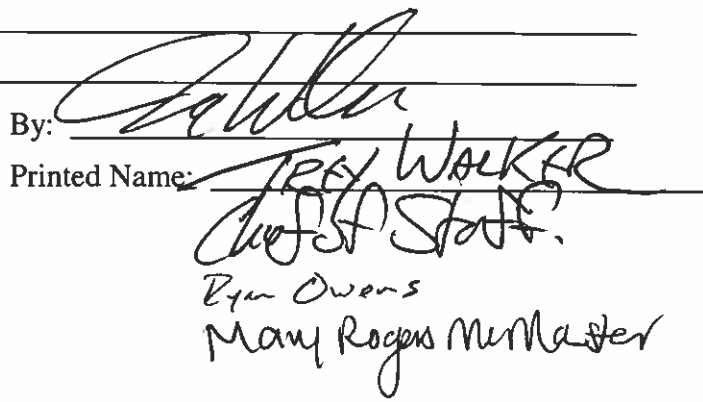 By:
Printed Name: TREY WALKER
Chief of Staff.
Ryan Owens
Mary Rogers McMaster